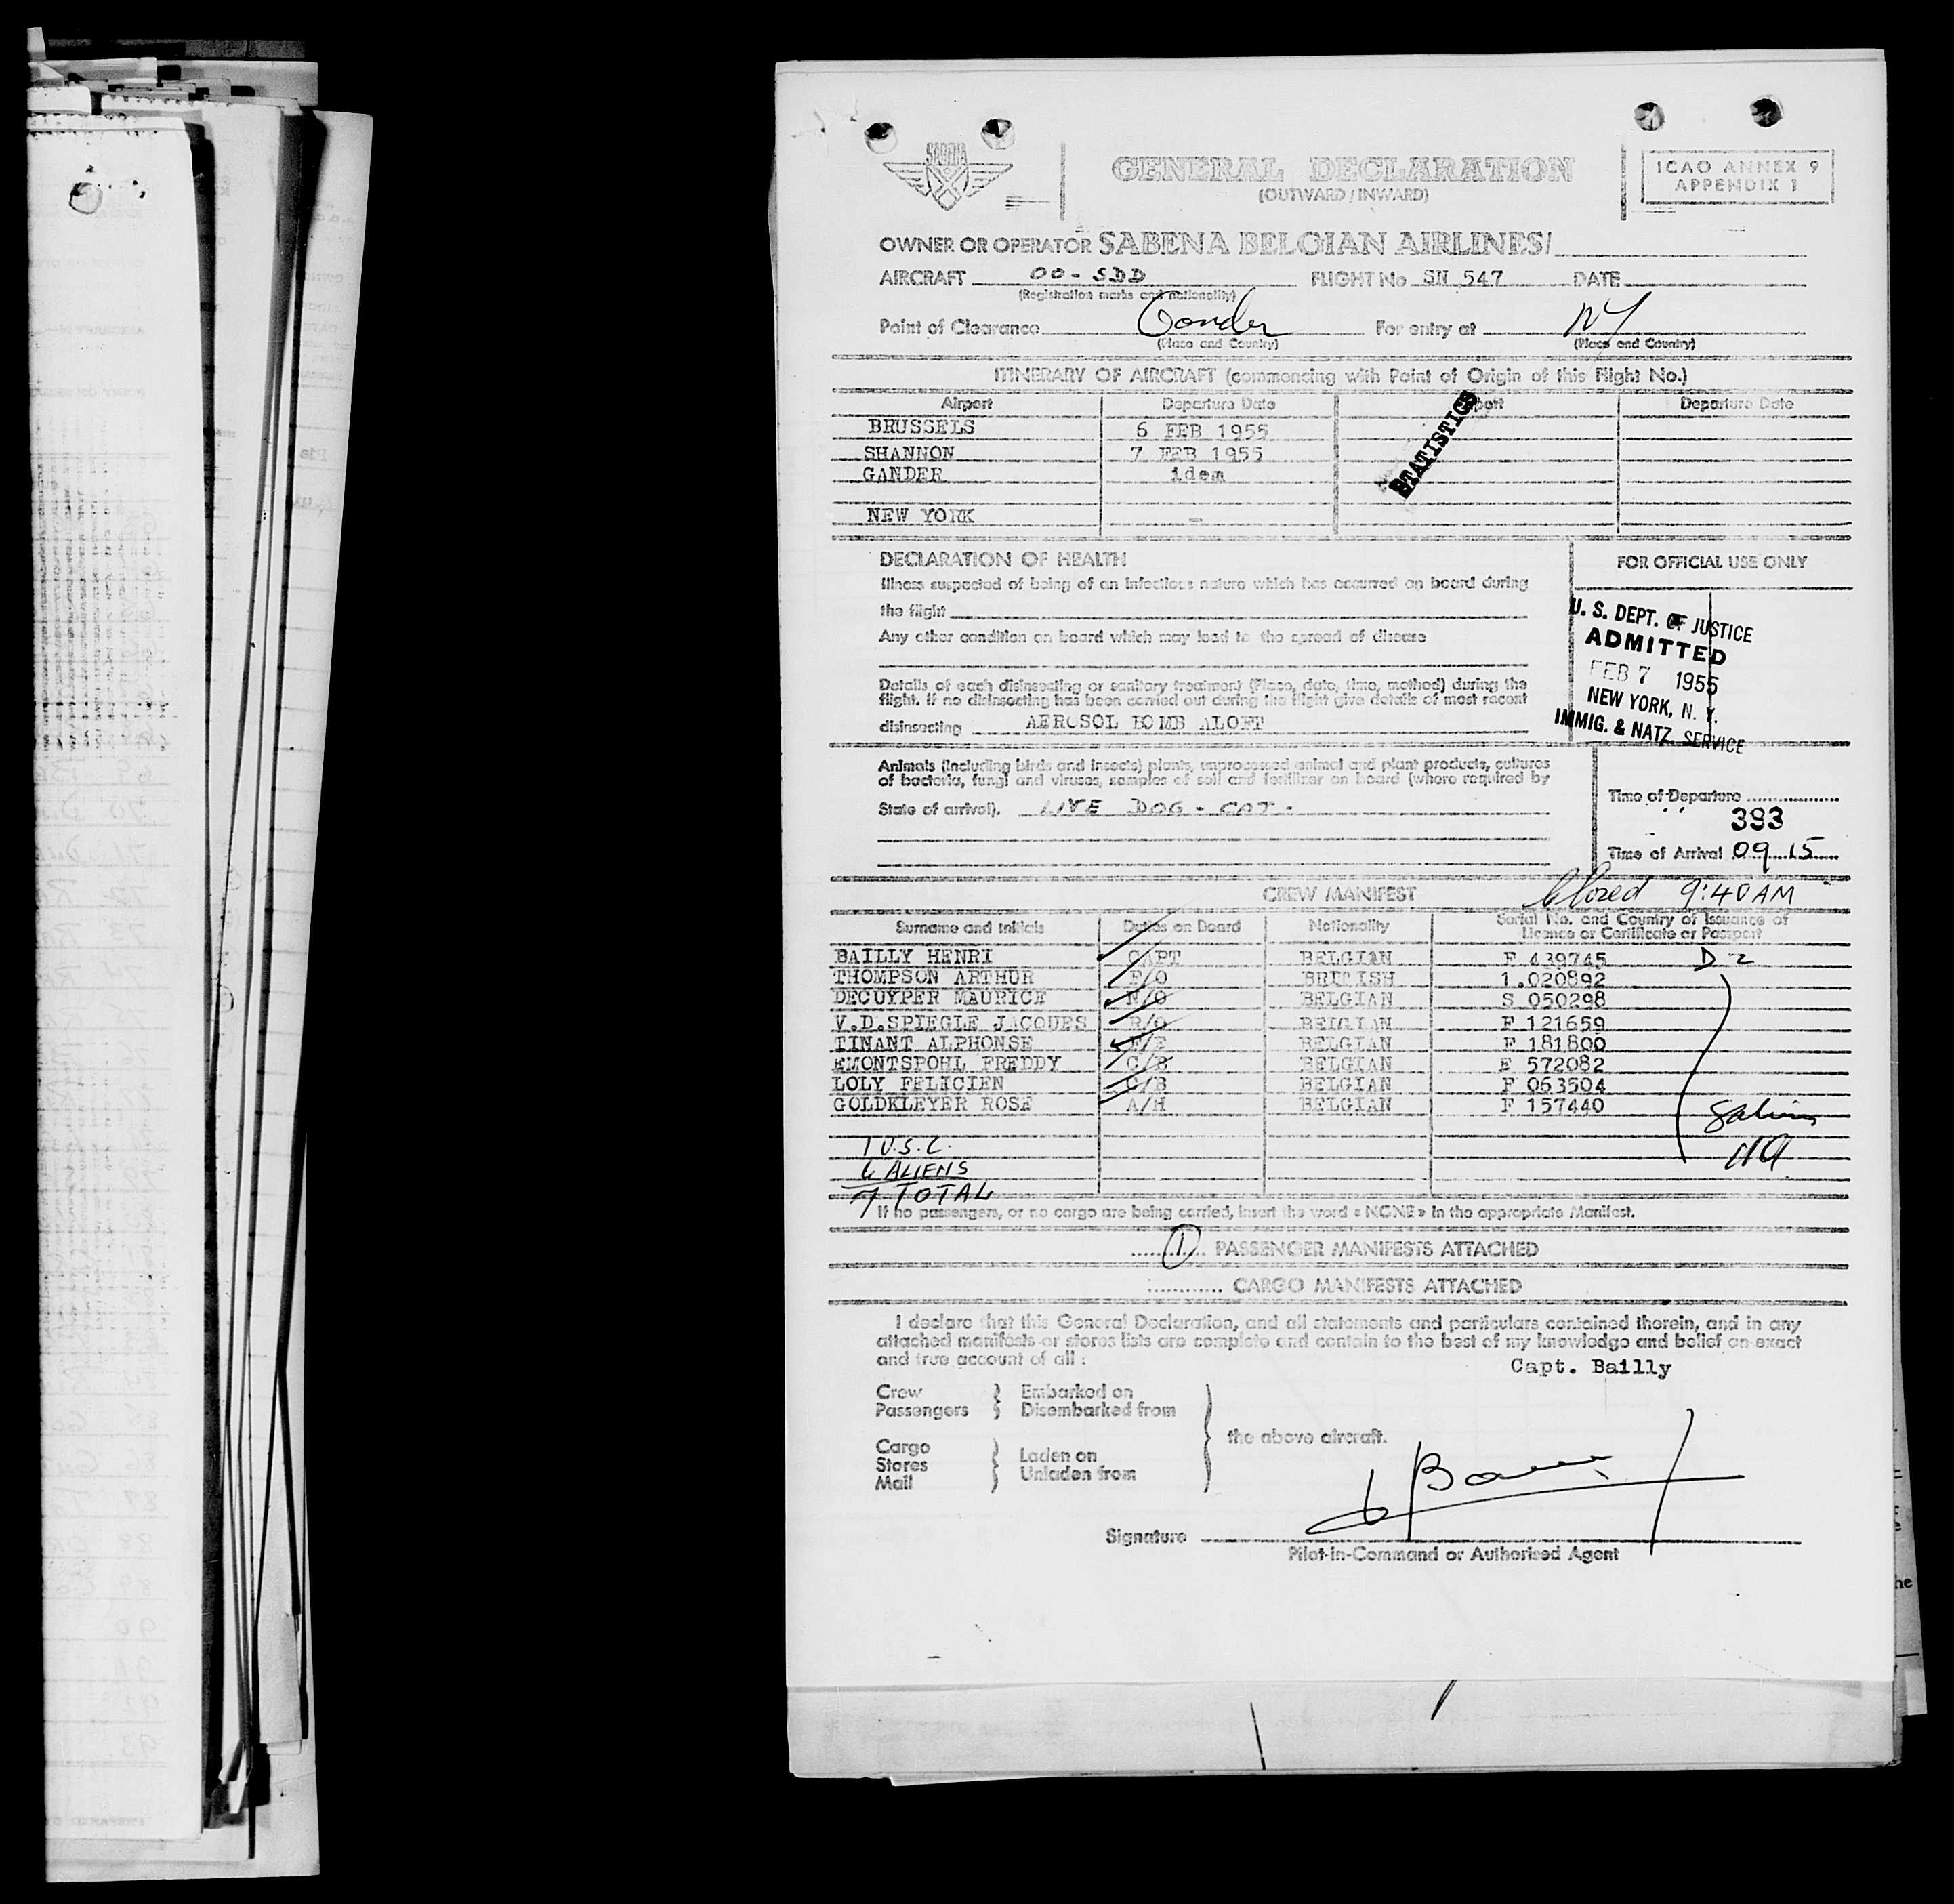 SABENA
GENERAL DECLARATION
(OUTWARD / INWARD)
ICAO ANNEX 9
APPENDIX 1
OWNER OR OPERATOR SABENA BELGIAN AIRLINES/
AIRCRAFT OO-SDD FLIGHT No SN 547 DATE
(Registration marks and nationality)
Point of Clearance Gander For entry at NY
(Place and Country) (Place and Country)
ITINERARY OF AIRCRAFT (commencing with Point of Origin of this Flight No.)
Airport Departure Date Departure Date
BRUSSELS 6 FEB 1955
SHANNON 7 FEB 1955
GANDER idem
NEW YORK -
STATISTICS
DECLARATION OF HEALTH
Illness suspected of being of an infectious nature which has occurred on board during
the flight
Any other condition on board which may lead to the spread of disease
Details of each disinsecting or sanitary treatment (Place, date, time, method) during the
flight. If no disinsecting has been carried out during the flight give details of most recent
disinsecting AEROSOL BOMB ALOFT
FOR OFFICIAL USE ONLY
U. S. DEPT. OF JUSTICE
ADMITTED
FEB 7 1955
NEW YORK, N. Y.
IMMIG. & NATZ. SERVICE
Animals (including birds and insects) plants, unprocessed animal and plant products, cultures
of bacteria, fungi and viruses, samples of soil and fertilizer on board (where required by
State of arrival). LIVE DOG - CAT -
Time of Departure
393
Time of Arrival 09 15
CREW MANIFEST
Closed 9:40 AM
Surname and Initials Duties on Board Nationality Serial No. and Country of Issuance of
Licence or Certificate or Passport
BAILLY HENRI CAPT BELGIAN F 439745 D-2
THOMPSON ARTHUR F/O BRITISH 1.020892
DECUYPER MAURICE N/O BELGIAN S 050298
V.D.SPIEGLE JACQUES R/O BELGIAN F 121659
TINANT ALPHONSE F/E BELGIAN F 181800
EMONTSPOHL FREDDY C/B BELGIAN F 572082
LOLY FELICIEN C/B BELGIAN F 063504
GOLDKLEYER ROSE A/H BELGIAN F 157440
1 U.S.C.
6 ALIENS
7 TOTAL
If no passengers, or no cargo are being carried, insert the word « NONE » in the appropriate Manifest.
1 PASSENGER MANIFESTS ATTACHED
CARGO MANIFESTS ATTACHED
I declare that this General Declaration, and all statements and particulars contained therein, and in any
attached manifests or stores lists are complete and contain to the best of my knowledge and belief an exact
and true account of all :
Capt. Bailly
Crew Embarked on
Passengers Disembarked from
the above aircraft.
Cargo Laden on
Stores Unladen from
Mail
Signature
Pilot-in-Command or Authorised Agent